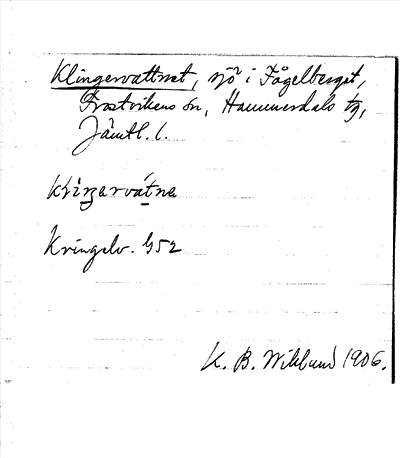 Klingervattnet, sjö i Fågelberget,
Frostvikens sn, Hammerdals tg,
Jämtl. l.
Kringelv. G52
K. B. Wiklund 1906.